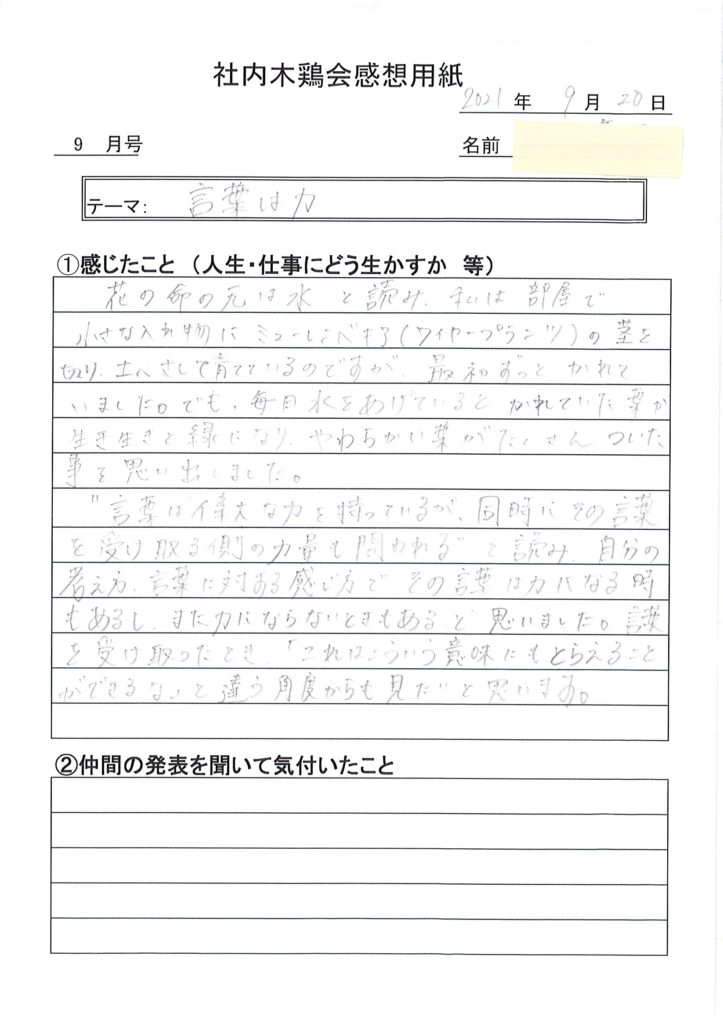 社内木鶏会感想用紙
2021 年 9 月 20 日
9 月号 名前
テーマ: 言葉は力
①感じたこと （人生・仕事にどう生かすか 等）
花の命の元は水 と読み、私は 部屋で
小さな入れ物に ミューレンベキる(ワイヤープランツ)の茎を
切り、土へさして育てているのですが、最初ずっと かれて
いました。でも、毎日水をあげていると かれていた葉が
生き生きと緑になり、やわらかい葉がたくさん ついた
事を思い出しました。
"言葉は偉大な力を持っているが、同時にその言葉
を受け取る側の力量も問われる" と読み、自分の
考え方、言葉に対する感じ方で その言葉は力になる時
もあるし、また力にならないときもあると 思いました。言葉
を受け取ったとき、「これはこういう意味にもとらえること
ができるな」と違う角度からも見たいと思います。
②仲間の発表を聞いて気付いたこと